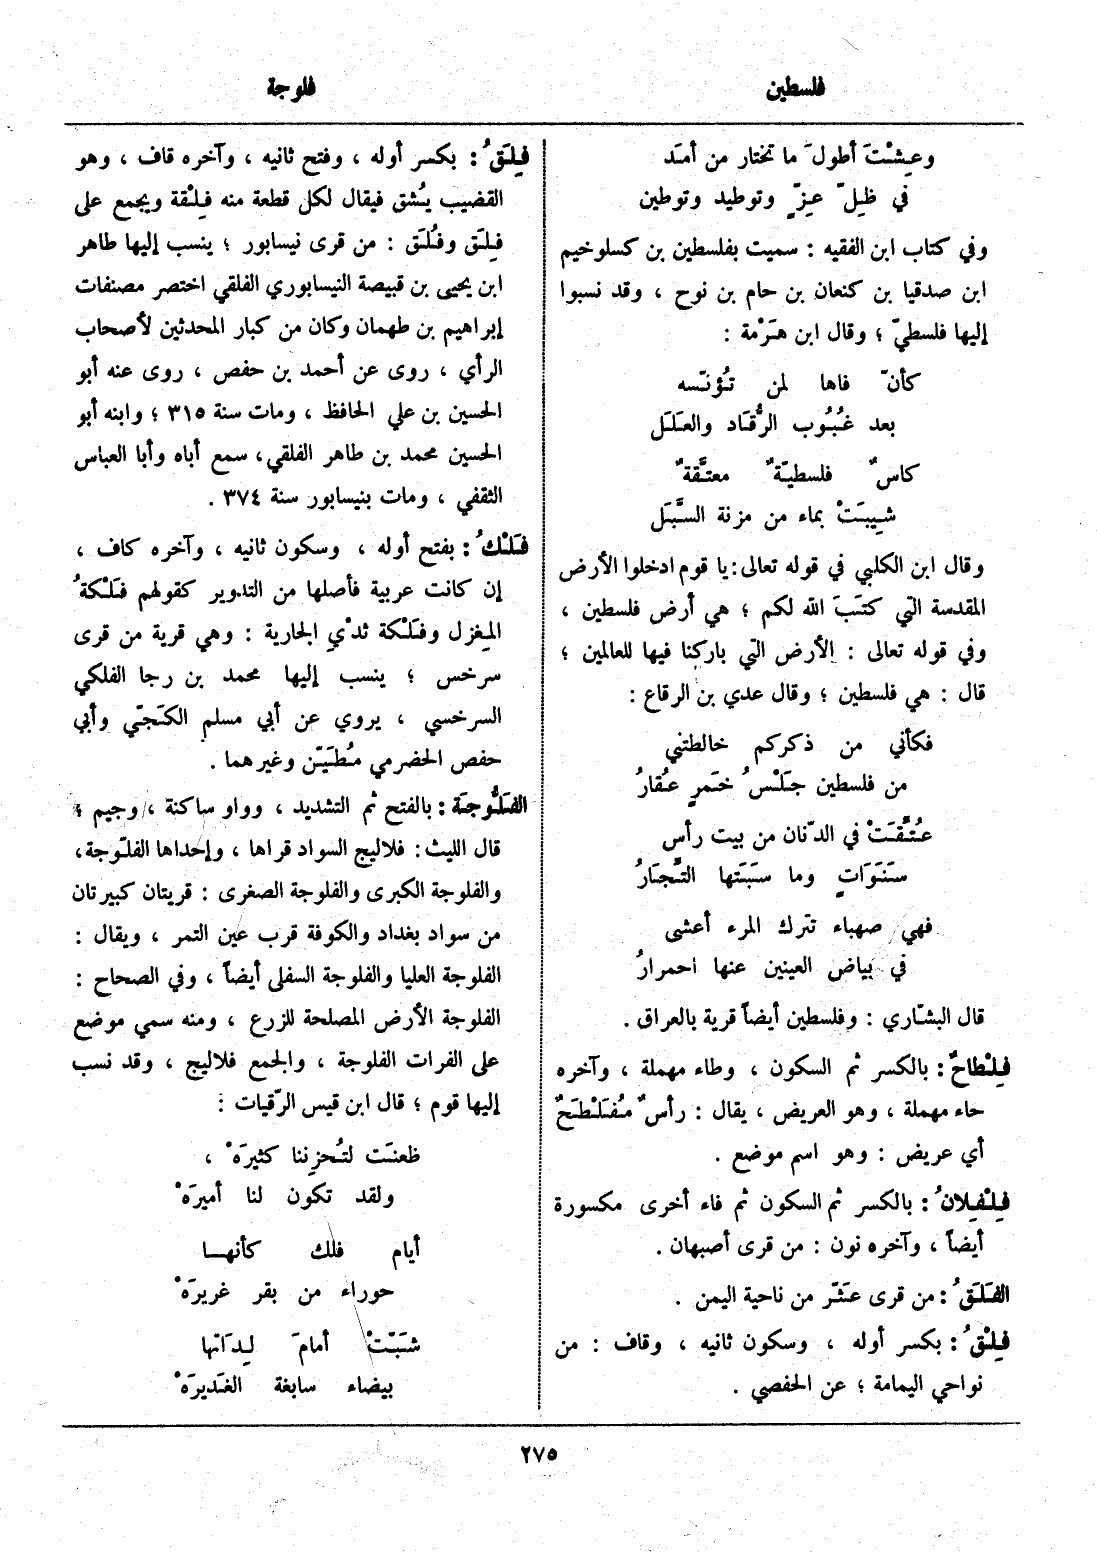 فلسطين
فلوجة
وعِشْتَ أطولَ ما تختار من أمَد
في ظِلّ عِزٍّ وتوطيد وتوطين
وفي كتاب ابن الفقيه : سميت بفلسطين بن كسلوخيم
ابن صدقيا بن كنعان بن حام بن نوح ، وقد نسبوا
إليها فلسطيّ ؛ وقال ابن هَرْمة :
كأنّ فاها لمن تُؤنّسه
بعد غُبُوب الرُّقاد والعَلَل
كاسٌ فلسطيّةٌ معتّقةٌ
شيبَتْ بماء من مزنة السَّبَل
وقال ابن الكلبي في قوله تعالى:يا قوم ادخلوا الأرض
المقدسة التي كتَبَ الله لكم ؛ هي أرض فلسطين ،
وفي قوله تعالى : الأرض التي باركنا فيها للعالمين ؛
قال : هي فلسطين ؛ وقال عدي بن الرقاع :
فكأني من ذكركم خالطتني
من فلسطين جَلْسُ خَمرٍ عُقارُ
عُتّقَتْ في الدّنان من بيت رأس
سَنَوَاتٍ وما سَبَتها التِّجَارُ
فهي صهباء تترك المرء أعشى
في بياض العينين عنها احمرارُ
قال البشّاري : وفلسطين أيضاً قرية بالعراق .
فِلْطاحٌ : بالكسر ثم السكون ، وطاء مهملة ، وآخره
حاء مهملة ، وهو العريض ، يقال : رأسٌ مُفَلْطَحٌ
أي عريض : وهو اسم موضع .
فِلْفِلانُ : بالكسر ثم السكون ثم فاء أخرى مكسورة
أيضاً ، وآخره نون : من قرى أصبهان .
الفَلَقُ : من قرى عَثّر من ناحية اليمن .
فِلْقُ : بكسر أوله ، وسكون ثانيه ، وقاف : من
نواحي اليمامة ؛ عن الحفصي .
فِلَقُ : بكسر أوله ، وفتح ثانيه ، وآخره قاف ، وهو
القضيب يُشق فيقال لكل قطعة منه فِلْقة ويجمع على
فِلَق وفُلَق : من قرى نيسابور ؛ ينسب إليها طاهر
ابن يحيى بن قبيصة النيسابوري الفلقي اختصر مصنفات
إبراهيم بن طهمان وكان من كبار المحدثين لأصحاب
الرأي ، روى عن أحمد بن حفص ، روى عنه أبو
الحسين بن علي الحافظ ، ومات سنة ٣١٥ ؛ وابنه أبو
الحسين محمد بن طاهر الفلقي، سمع أباه وأبا العباس
الثقفي ، ومات بنيسابور سنة ٣٧٤ .
فَلْكُ : بفتح أوله ، وسكون ثانيه ، وآخره كاف ،
إن كانت عربية فأصلها من التدوير كقولهم فَلْكةُ
المِغزل وفَلْكة ثدْيِ الجارية : وهي قرية من قرى
سرخس ؛ ينسب إليها محمد بن رجا الفلكي
السرخسي ، يروي عن أبي مسلم الكَجّي وأبي
حفص الحضرمي مُطَيّن وغيرهما .
الفَلُّوجَة : بالفتح ثم التشديد ، وواو ساكنة ، وجيم ؛
قال الليث : فلاليج السواد قراها ، وإحداها الفلّوجة،
والفلوجة الكبرى والفلوجة الصغرى : قريتان كبيرتان
من سواد بغداد والكوفة قرب عين التمر ، ويقال :
الفلوجة العليا والفلوجة السفلى أيضاً ، وفي الصحاح :
الفلوجة الأرض المصلحة للزرع ، ومنه سمي موضع
على الفرات الفلوجة ، والجمع فلاليج ، وقد نسب
إليها قوم ؛ قال ابن قيس الرّقيات :
ظعنَت لتُحزِننا كثيرَهْ ،
ولقد تكون لنا أميرَهْ
أيام فلك كأنهــا
حوراء من بقر غريرَهْ
شبَّتْ أمامَ لِدَاتها
بيضاء سابغة الغَديرَهْ
٢٧٥